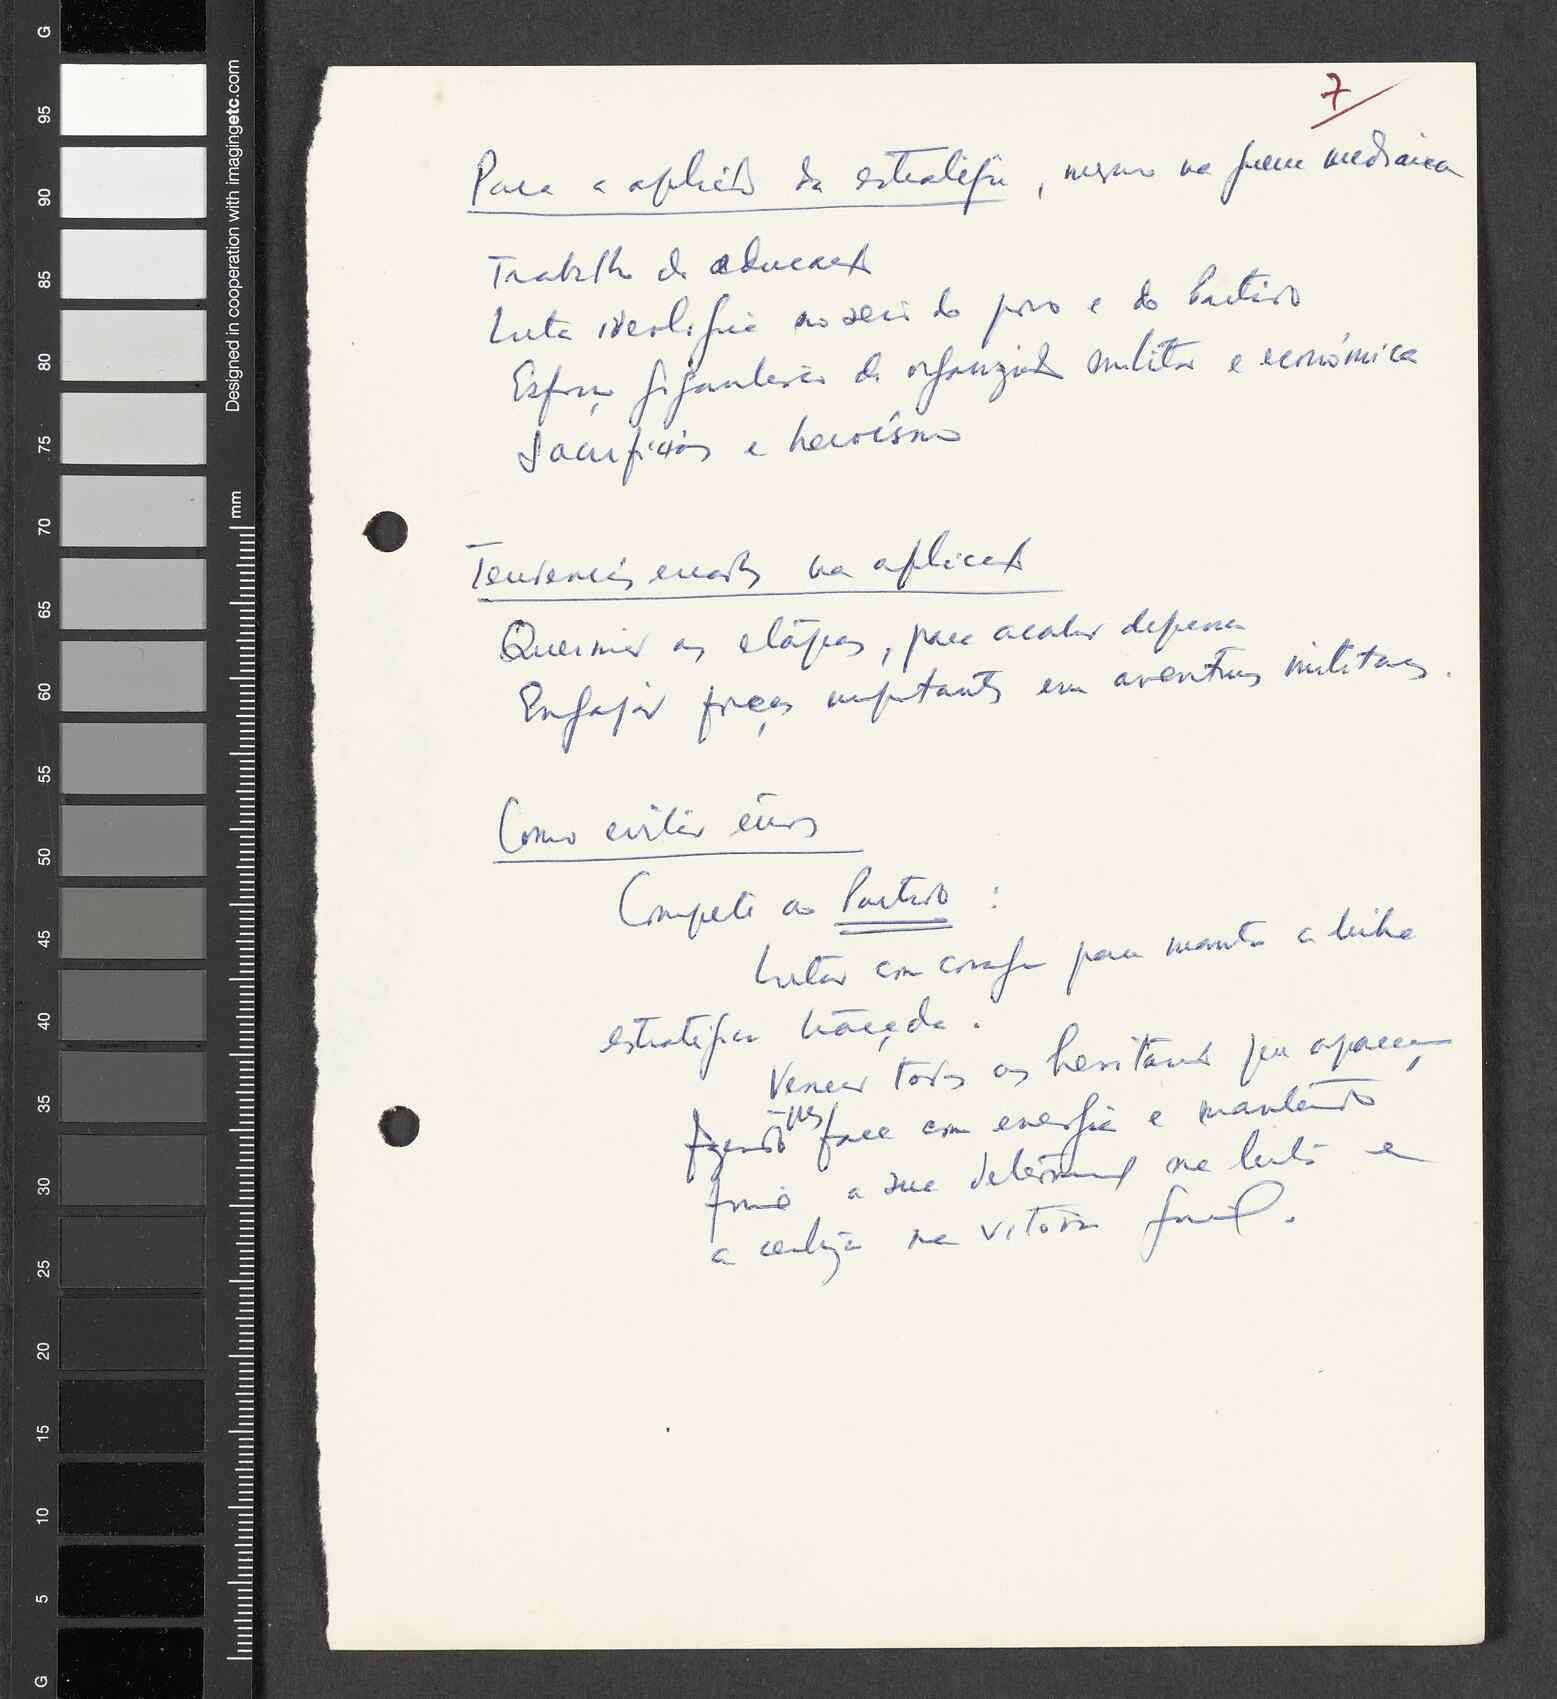 7
Para a aplicação da estratégia, mesmo na guerra mecânica
Trabalho de educação
Luta ideológica no seio do povo e do Partido
Esforço gigantesco de organização militar e económica
Sacrifícios e heroísmo
Tendencias erradas na aplicação
Queimar as etápas, para acabar depressa
Engajar forças importantes em aventuras militares.
Como evitar érros
Compete ao Partido :
Lutar com coragem para manter a linha
estratégica traçada.
Vencer todas as hesitações que apareçam
fazendo-lhes face com energia e mantendo
firme a sua determinação na luta e
a certeza na vitória final.
G
95
90
85
80
75
70
65
60
55
50
45
40
35
30
25
20
15
10
5
G
Designed in cooperation with imagingetc.com
mm